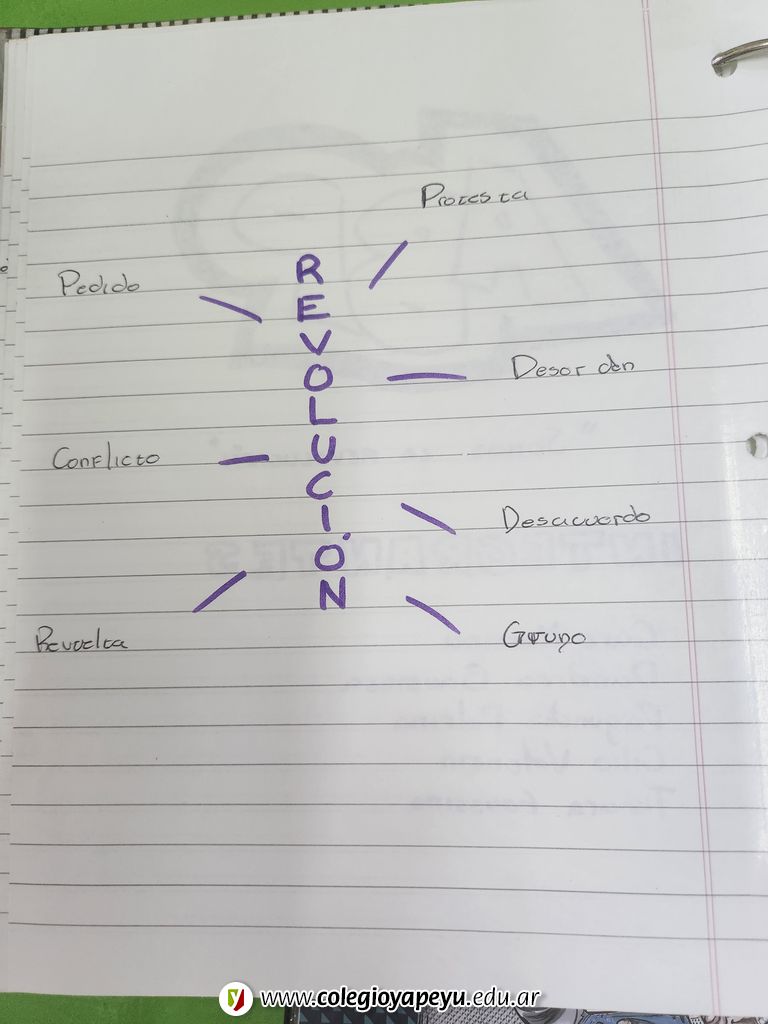 Protesta
Pedido
REVOLUCIÓN
Desorden
Conflicto
Desacuerdo
Revuelta
Grupo
www.colegioyapeyu.edu.ar